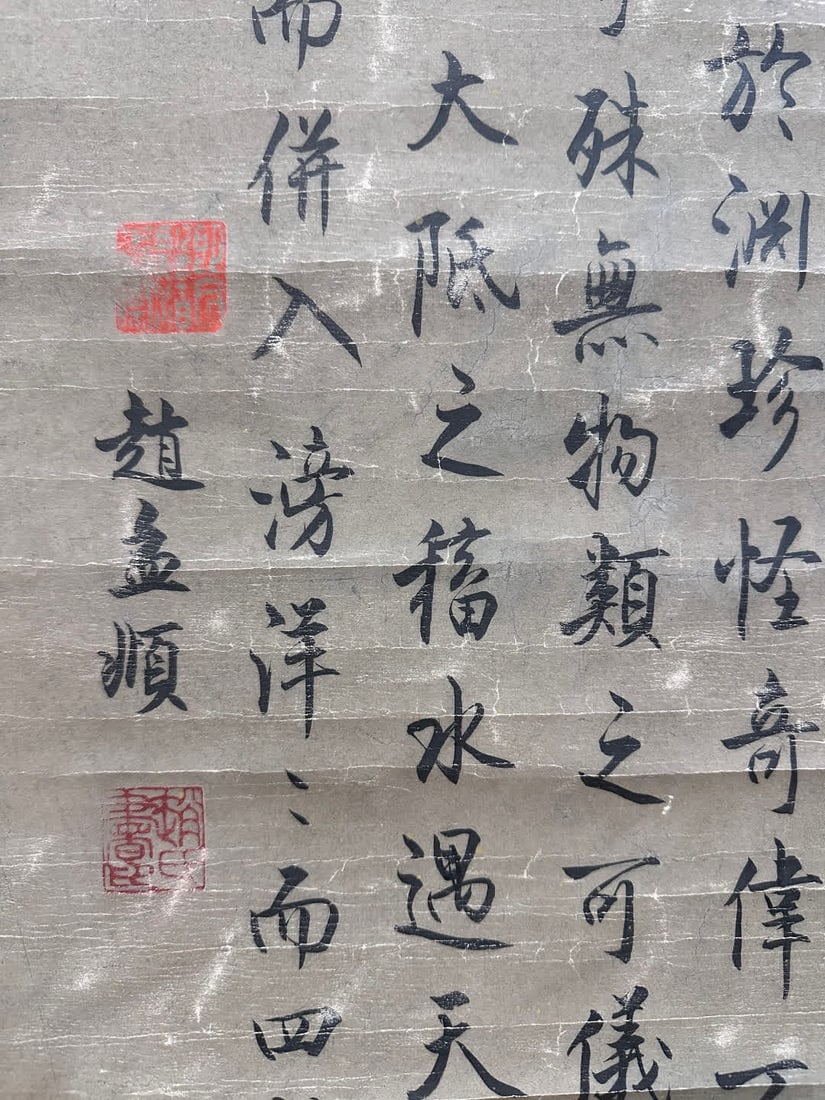 於渊珍怪奇偉
殊無物類之可儀
大阺之稸水遇天
而併入滂洋〻而四
趙孟頫
趙氏書印